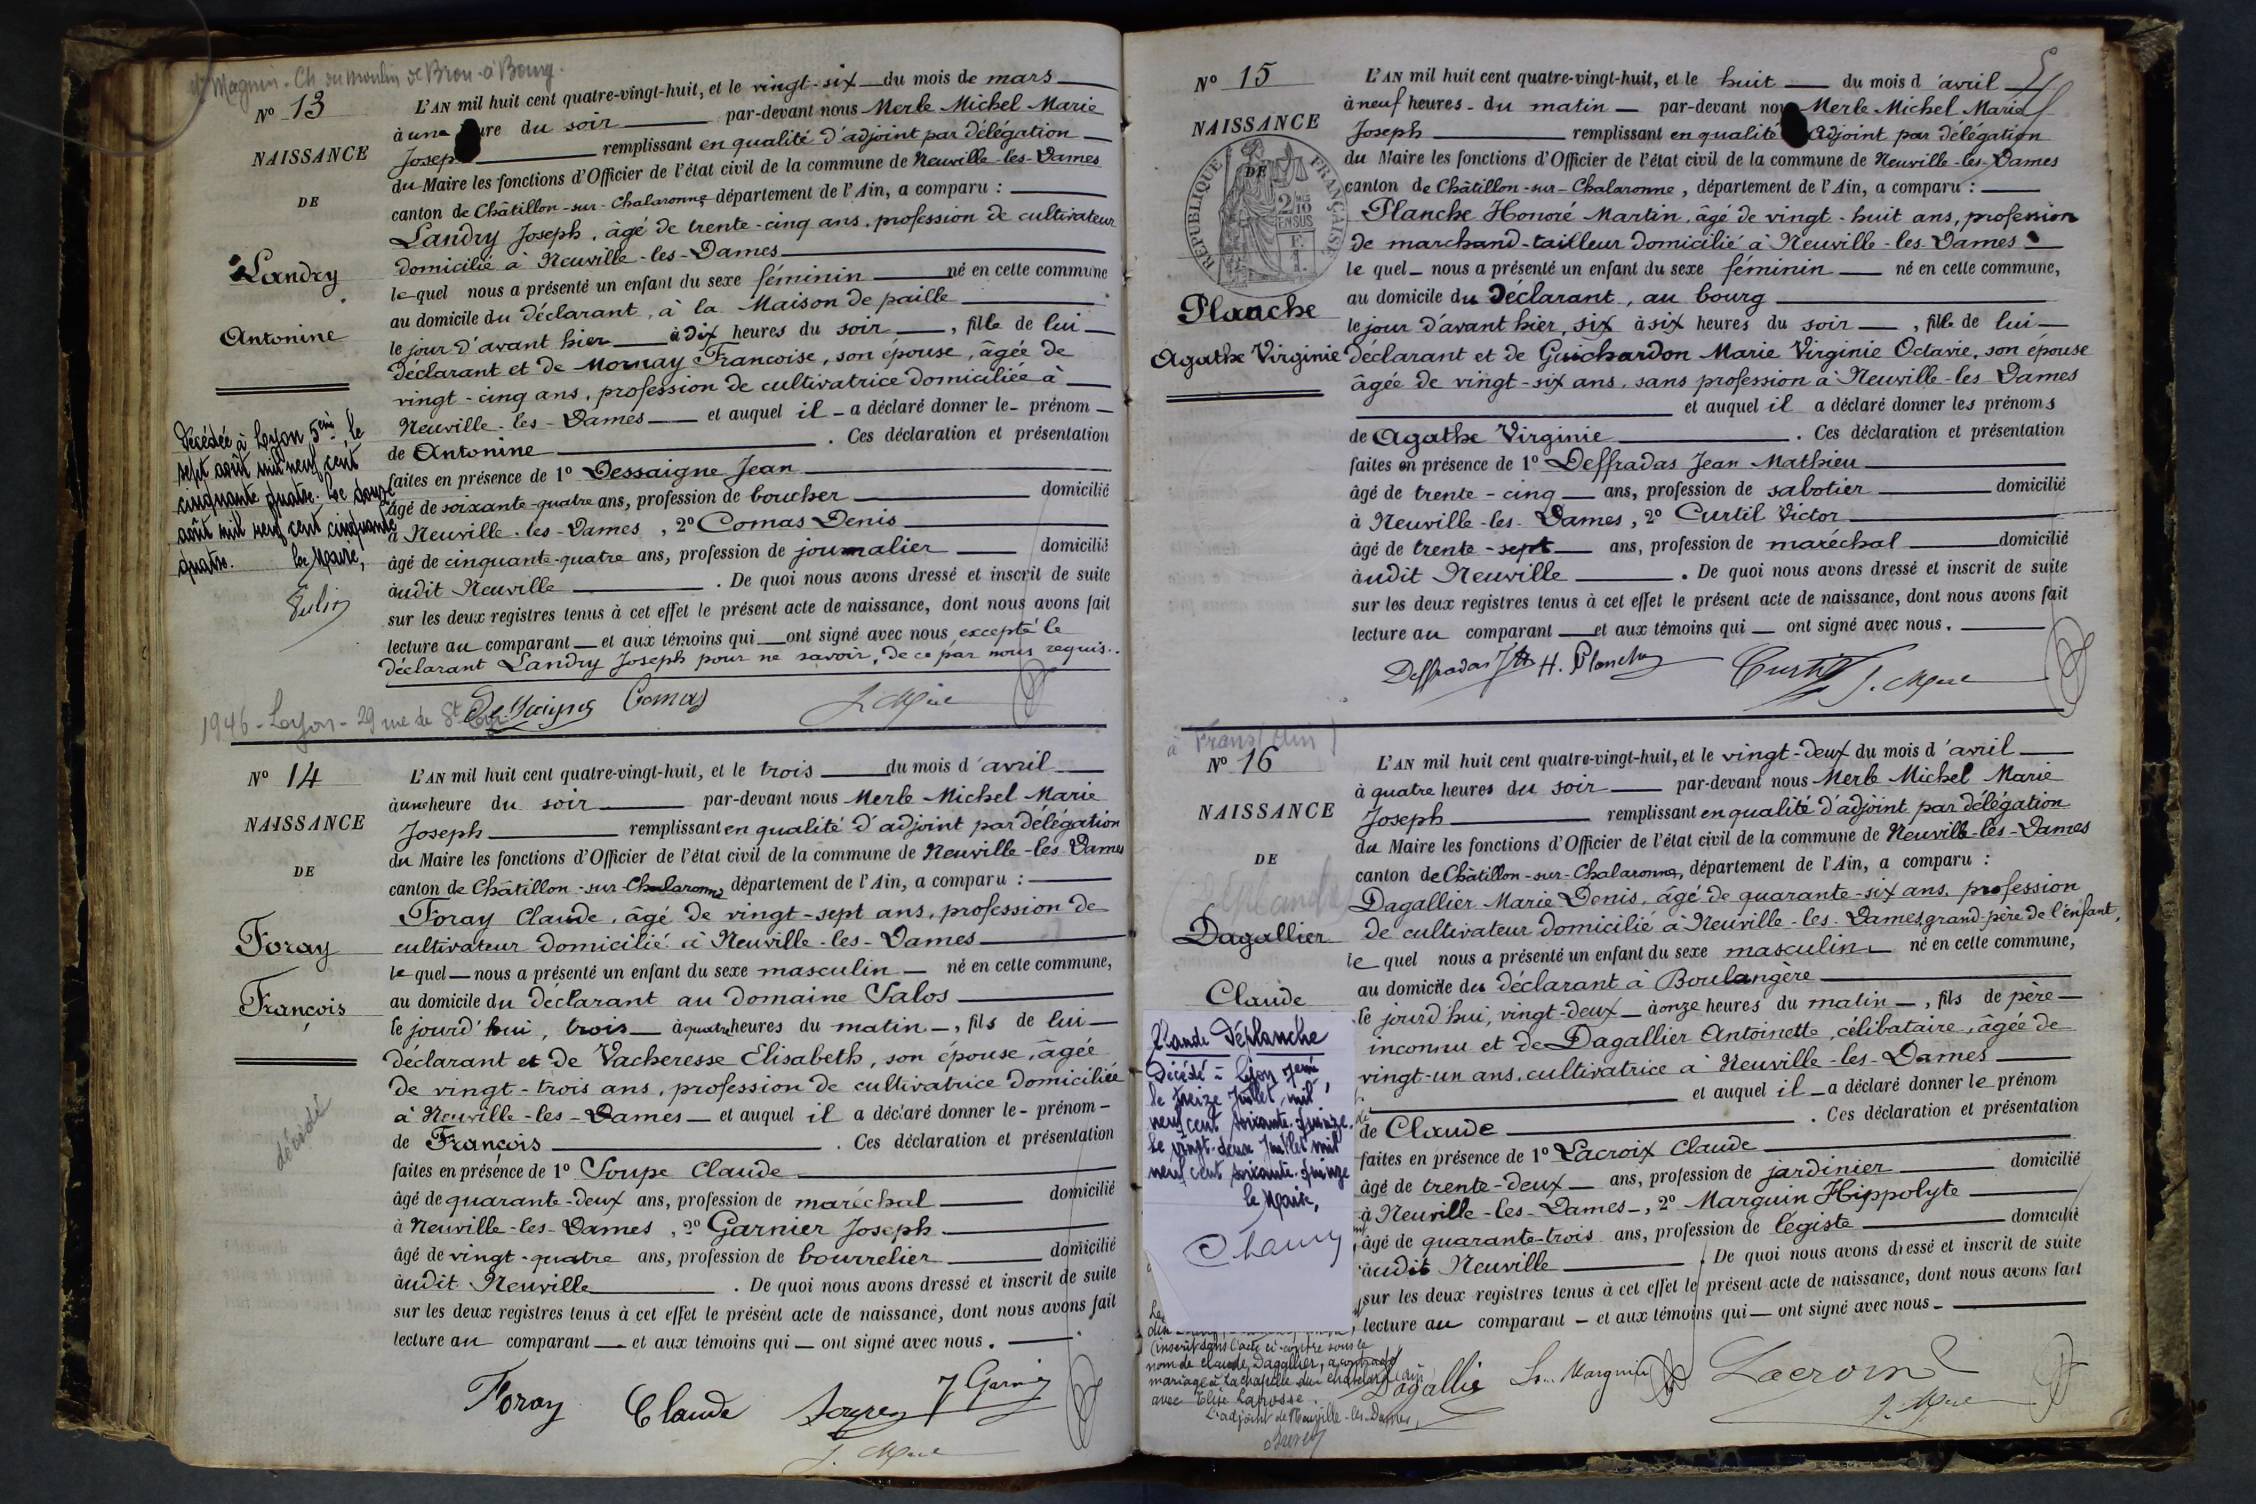 Magnin - Ch. du Moulin de Brou - à Bourg.
N° 13
NAISSANCE
DE
Landry
Antonine
Décédée à Lyon 5eme, le
sept août mil neuf cent
cinquante quatre. Le douze
août mil neuf cent cinquante
quatre. Le Maire,
L'AN mil huit cent quatre-vingt-huit, et le vingt-six du mois de mars
à une heure du soir par-devant nous Merle Michel Marie
Joseph remplissant en qualité d'adjoint par délégation
du Maire les fonctions d'Officier de l'état civil de la commune de Neuville-les-Dames
canton de Châtillon-sur-Chalaronne, département de l'Ain, a comparu :
Landry Joseph, âgé de trente-cinq ans, profession de cultivateur
domicilié à Neuville-les-Dames
lequel nous a présenté un enfant du sexe féminin né en cette commune
au domicile du déclarant, à la Maison de paille
le jour d'avant hier à dix heures du soir, fille de lui
déclarant et de Mornay Francoise, son épouse, âgée de
vingt-cinq ans, profession de cultivatrice domiciliée à
Neuville-les-Dames et auquel il a déclaré donner le prénom
de Antonine. Ces déclaration et présentation
faites en présence de 1° Dessaigne Jean
âgé de soixante-quatre ans, profession de boucher domicilié
à Neuville-les-Dames, 2° Comas Denis
âgé de cinquante-quatre ans, profession de journalier domicilié
audit Neuville. De quoi nous avons dressé et inscrit de suite
sur les deux registres tenus à cet effet le présent acte de naissance, dont nous avons fait
lecture au comparant et aux témoins qui ont signé avec nous excepté le
déclarant Landry Joseph pour ne savoir, de ce par nous requis.
Dessaigne Comas J. Merle
1946 - Lyon - 29 rue de St Cyr
N° 14
NAISSANCE
DE
Foray
François
décédé
L'AN mil huit cent quatre-vingt-huit, et le trois du mois d'avril
à une heure du soir par-devant nous Merle Michel Marie
Joseph remplissant en qualité d'adjoint par délégation
du Maire les fonctions d'Officier de l'état civil de la commune de Neuville-les-Dames
canton de Châtillon-sur-Chalaronne département de l'Ain, a comparu :
Foray Claude, âgé de vingt-sept ans, profession de
cultivateur domicilié à Neuville-les-Dames
lequel nous a présenté un enfant du sexe masculin né en cette commune,
au domicile du déclarant au domaine Salos
le jourd'hui, trois à quatre heures du matin, fils de lui
déclarant et de Vacheresse Elisabeth, son épouse, âgée
de vingt-trois ans, profession de cultivatrice domiciliée
à Neuville-les-Dames et auquel il a déclaré donner le prénom
de François. Ces déclaration et présentation
faites en présence de 1° Soupe Claude
âgé de quarante-deux ans, profession de maréchal domicilié
à Neuville-les-Dames, 2° Garnier Joseph
âgé de vingt-quatre ans, profession de bourrelier domicilié
audit Neuville. De quoi nous avons dressé et inscrit de suite
sur les deux registres tenus à cet effet le présent acte de naissance, dont nous avons fait
lecture au comparant et aux témoins qui ont signé avec nous.
Foray Claude Soupe J Garnier
J. Merle
5
N° 15
NAISSANCE
DE
RÉPUBLIQUE FRANÇAISE
2 DMES 10 EN SUS
Planche
Agathe Virginie
L'AN mil huit cent quatre-vingt-huit, et le huit du mois d'avril
à neuf heures du matin par-devant nous Merle Michel Marie
Joseph remplissant en qualité d'adjoint par délégation
du Maire les fonctions d'Officier de l'état civil de la commune de Neuville-les-Dames
canton de Châtillon-sur-Chalaronne, département de l'Ain, a comparu :
Planche Honoré Martin, âgé de vingt-huit ans, profession
de marchand-tailleur domicilié à Neuville-les-Dames
lequel nous a présenté un enfant du sexe féminin né en cette commune,
au domicile du déclarant, au bourg
le jour d'avant hier, six à six heures du soir, fille de lui
déclarant et de Guichardon Marie Virginie Octavie, son épouse
âgée de vingt-six ans, sans profession à Neuville-les-Dames
et auquel il a déclaré donner les prénoms
de Agathe Virginie. Ces déclaration et présentation
faites en présence de 1° Deffradas Jean Mathieu
âgé de trente-cinq ans, profession de sabotier domicilié
à Neuville-les-Dames, 2° Curtil Victor
âgé de trente-sept ans, profession de maréchal domicilié
audit Neuville. De quoi nous avons dressé et inscrit de suite
sur les deux registres tenus à cet effet le présent acte de naissance, dont nous avons fait
lecture au comparant et aux témoins qui ont signé avec nous.
Deffradas H. Planche Curtil J. Merle
à Frans (Ain)
N° 16
NAISSANCE
DE
Déplanche
Dagallier
Claude
Claude Déplanche
Décédé à Lyon 7eme,
le treize Juillet mil
neuf cent soixante-quinze.
Le vingt-deux Juillet mil
neuf cent soixante-quinze
Le Maire,
(inscrit dans l'acte ci-contre sous le
nom de Claude Dagallier, a contracté
mariage à La Chapelle du Chatelard (Ain)
avec Elise Laposse.
L'adjoint de Neuville-les-Dames,
L'AN mil huit cent quatre-vingt-huit, et le vingt-deux du mois d'avril
à quatre heures du soir par-devant nous Merle Michel Marie
Joseph remplissant en qualité d'adjoint par délégation
du Maire les fonctions d'Officier de l'état civil de la commune de Neuville-les-Dames
canton de Châtillon-sur-Chalaronne, département de l'Ain, a comparu :
Dagallier Marie Denis, âgé de quarante-six ans, profession
de cultivateur domicilié à Neuville-les-Dames, grand-père de l'enfant,
lequel nous a présenté un enfant du sexe masculin né en cette commune,
au domicile du déclarant à Boulangère
le jourd'hui, vingt-deux à onze heures du matin, fils de père
inconnu et de Dagallier Antoinette, célibataire, âgée de
vingt-un ans, cultivatrice à Neuville-les-Dames
et auquel il a déclaré donner le prénom
de Claude. Ces déclaration et présentation
faites en présence de 1° Lacroix Claude
âgé de trente-deux ans, profession de jardinier domicilié
à Neuville-les-Dames, 2° Marguin Hippolyte
âgé de quarante-trois ans, profession de légiste domicilié
audit Neuville. De quoi nous avons dressé et inscrit de suite
sur les deux registres tenus à cet effet le présent acte de naissance, dont nous avons fait
lecture au comparant et aux témoins qui ont signé avec nous.
Dagallier Marguin Lacroix
J. Merle